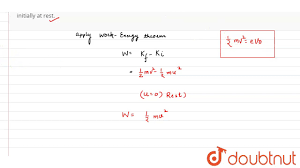 initially at rest.
Apply Work-Energy theorem
W = Kf - Ki
= 1/2 mv² - 1/2 mu²
(u=0) Rest
W = 1/2 mv²
1/2 mv² = eV₀
doubtnut